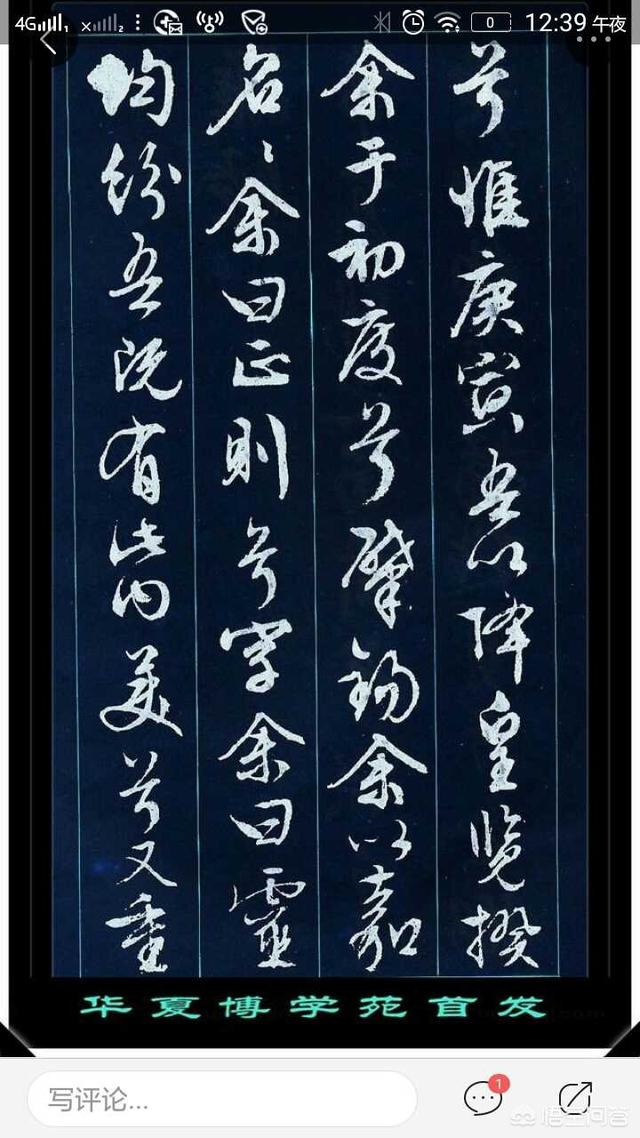 4G 1 x 2 0 12:39 午夜
兮惟庚寅吾以降皇览揆
余于初度兮肇锡余以嘉
名〻余曰正则兮字余曰靈
均纷吾既有此内美兮又重
华夏博学苑首发
写评论...
1
悟空问答